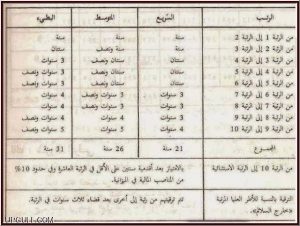 الرتب السريع المتوسط البطيء
من الرتبة 1 إلى الرتبة 2 سنة سنة سنة
من الرتبة 2 إلى الرتبة 3 سنتان سنتان سنتان
من الرتبة 3 إلى الرتبة 4 سنتان سنتان ونصف 3 سنوات
من الرتبة 4 إلى الرتبة 5 سنتان سنتان ونصف 3 سنوات ونصف
من الرتبة 5 إلى الرتبة 6 سنتان 3 سنوات 3 سنوات ونصف
من الرتبة 6 إلى الرتبة 7 3 سنوات 3 سنوات ونصف 4 سنوات
من الرتبة 7 إلى الرتبة 8 3 سنوات 3 سنوات ونصف 4 سنوات
من الرتبة 8 إلى الرتبة 9 3 سنوات 4 سنوات 5 سنوات
من الرتبة 9 إلى الرتبة 10 3 سنوات 4 سنوات 5 سنوات
المجموع 21 سنة 26 سنة 31 سنة
من الرتبة 10 إلى الرتبة الاستثنائية بالاختيار بعد أقدمية سنتين على الأقل في الرتبة العاشرة وفي حدود 10%
من المناصب المالية في الميزانية.
الترقية بالنسبة للأطر العليا المرتبة تتم ترقيتهم من رتبة إلى أخرى بعد قضاء ثلاث سنوات في الرتبة.
«خارج السلالم».